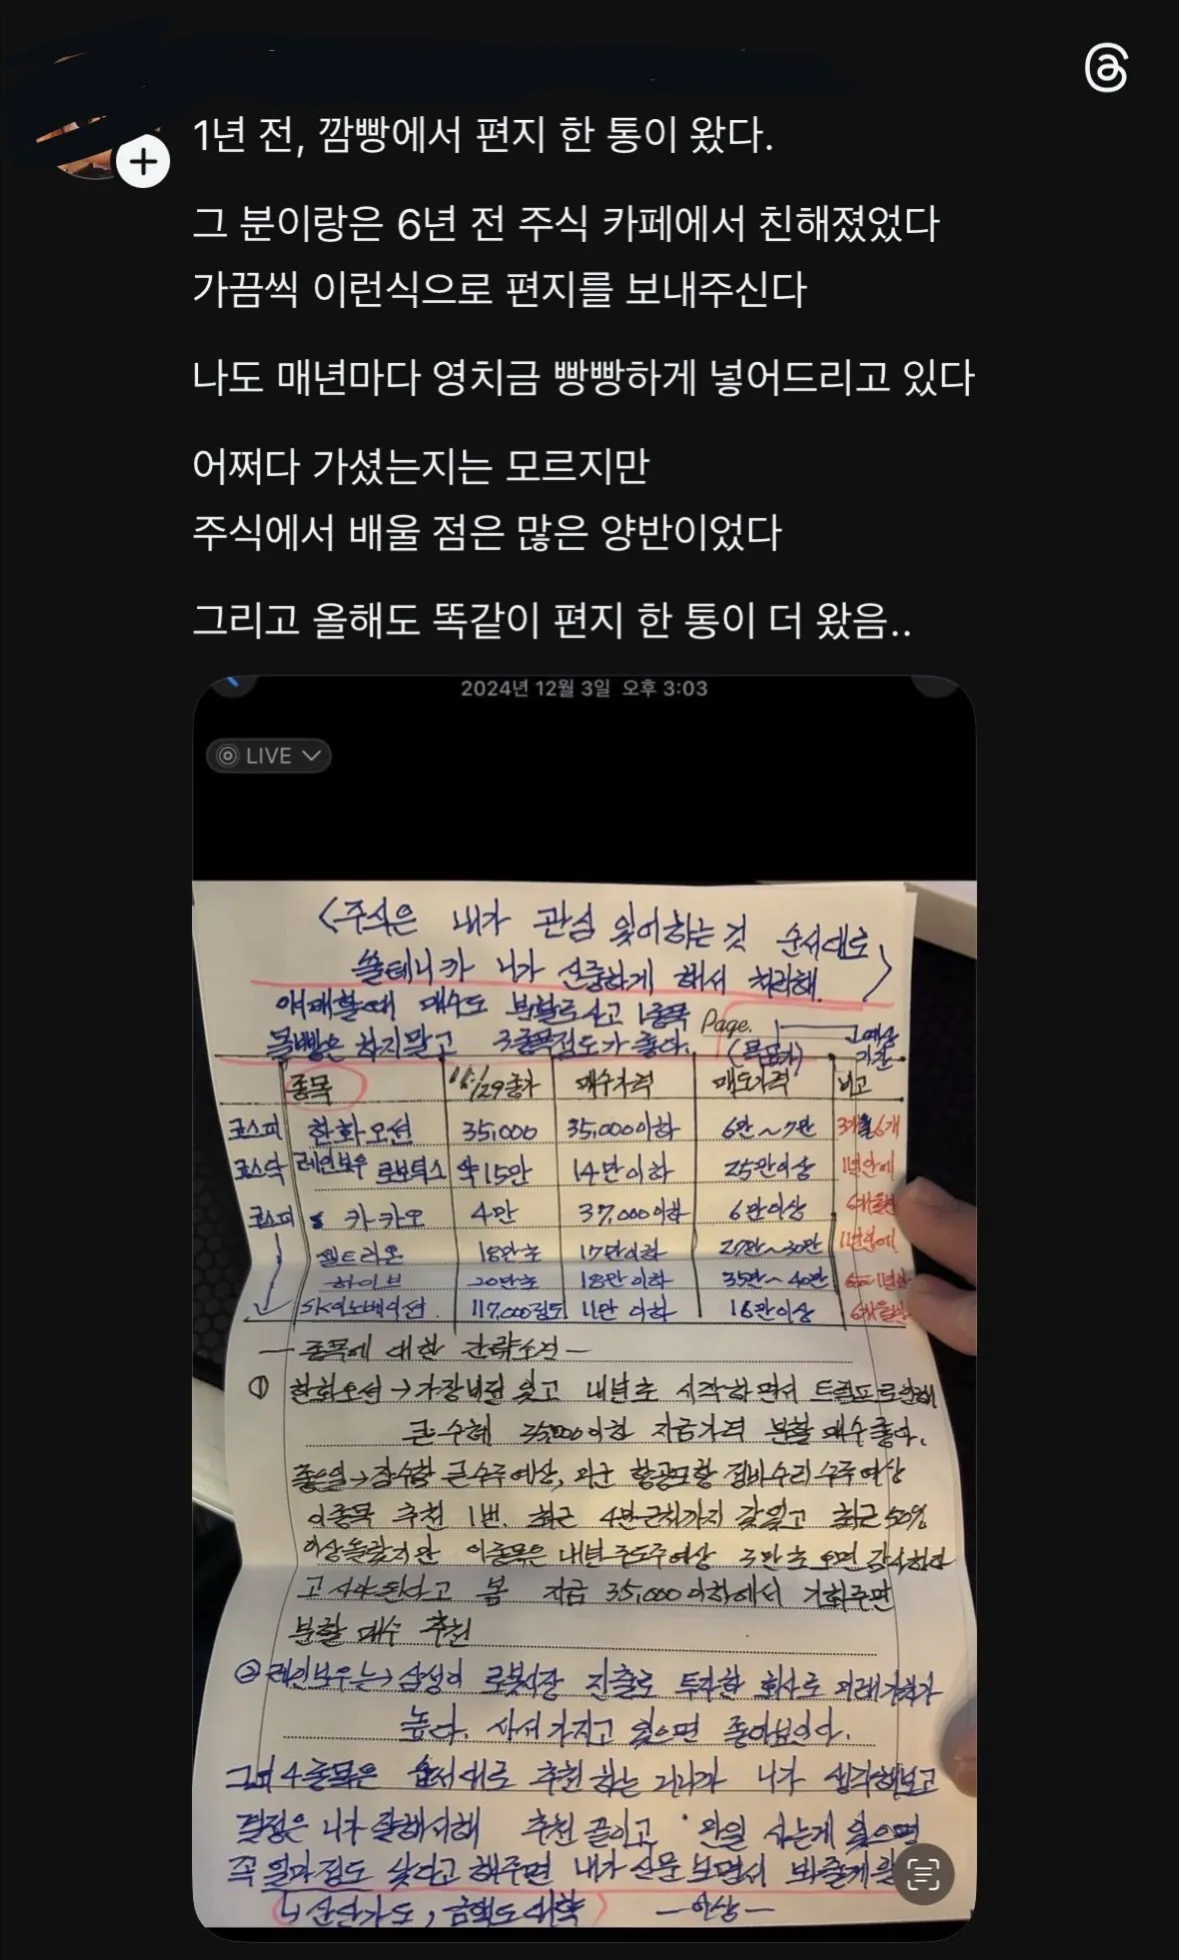 1년 전, 깜빵에서 편지 한 통이 왔다.
그 분이랑은 6년 전 주식 카페에서 친해졌었다
가끔씩 이런식으로 편지를 보내주신다
나도 매년마다 영치금 빵빵하게 넣어드리고 있다
어쩌다 가셨는지는 모르지만
주식에서 배울 점은 많은 양반이었다
그리고 올해도 똑같이 편지 한 통이 더 왔음..
2024년 12월 3일 오후 3:03
LIVE
<주식은 내가 관심 있어하는 것 순서대로
쓸테니까 니가 신중하게 해서 처리해.>
매매할때 매수도 분할로 사고 1종목
몰빵은 하지말고 3종목정도가 좋다.
Page.
(목표가)
예상
기간
종목 11/29종가 매수가격 매도가격 비고
코스피 한화오션 35,000 35,000이하 6만~7만 3개월 6개
코스닥 레인보우 로보틱스 약15만 14만이하 25만이상 1년안에
코스피 카카오 4만 37,000이하 6만이상 6개월
셀트리온 18만초 17만이하 27만~30만 1년안에
하이브 20만초 18만이하 35만~40만 1년안
SK이노베이션. 117,000정도 11만 이하 16만이상 6개월안
- 종목에 대한 간략소견 -
① 한화오션 → 가장비전 있고 내년초 시작하면서 트럼프로인해
큰수혜 35,000이하 지금가격 분할 매수좋다.
좋은일→잠수함 큰수주예상, 미군 항공모함 정비수리 수주예상
이종목 추천 1번. 최근 4만근처까지 갔있고 최근 50%
이상올랐지만 이종목은 내년 주도주예상 3만초 오면 감사하다
고 사야된다고 봄 지금 35,000이하에서 기회주면
분할 매수 추천
② 레인보우는→ 삼성이 로봇시장 진출로 투자한 회사로 미래가치가
높다. 사서 가지고 있으면 좋아보인다.
그외 4종목은 순서대로 추천하는 거니까 니가 생각해보고
결정은 니가 잘해서해 추천 끝이고 만일 사는게 있으면
꼭 얼마정도 샀다고 해주면 내가 신문 보면서 봐줄게
산단가도, 금액도 대략 -이상-